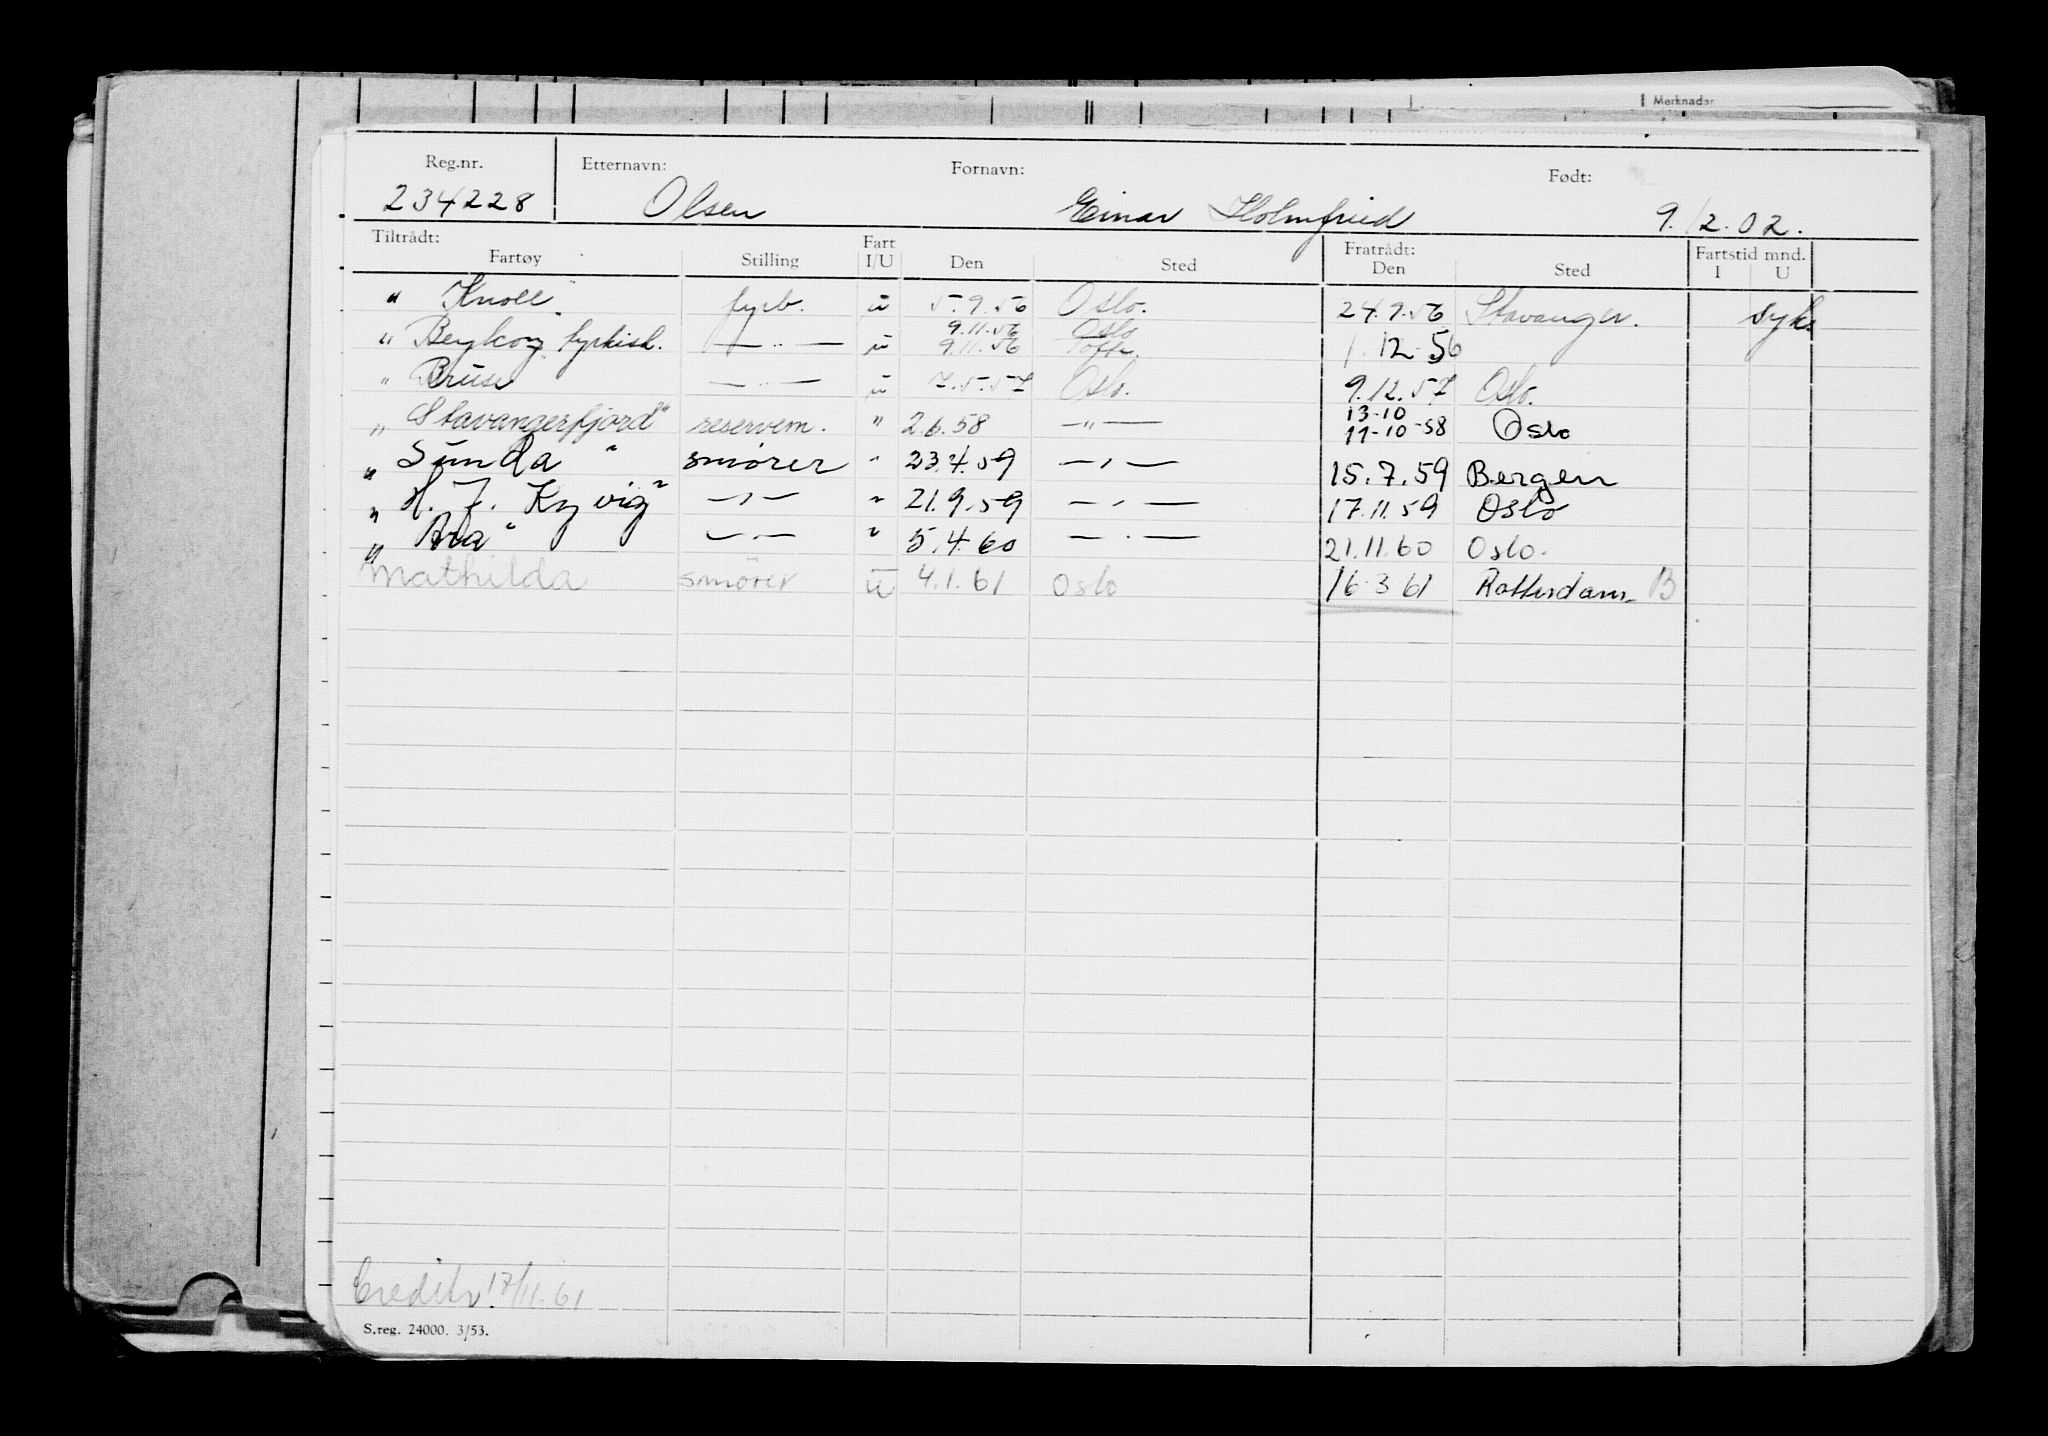 Merknader
Reg.nr. Etternavn: Fornavn: Født:
234228 Olsen Einar Holmfried 9/2.02.
Tiltrådt: Fart Fratrådt: Fartstid mnd.
Fartøy Stilling I/U Den Sted Den Sted I U
" Knoll" fyrb. u 5.9.56 Oslo. 24.9.56 Stavanger. syk.
9.11.56 Oslo
" — " — u 9.11.56 1.12-56
" Bruse — " — u 7.5.57 Oslo. 9.12.57 Oslo.
13-10
" Stavangerfjord" reservem. " 2.6.58 — " — 11-10-58 Oslo
" Sunda " smører " 23.4.59 — " — 15.7.59 Bergen
" H. J. Kyvig" — " — " 21.9.59 — " — 17.11.59 Oslo
" Ara" — " — " 5.4.60 — " — 21.11.60 Oslo.
Mathilda smører u 4.1.61 Oslo 16-3 61 Rotterdam B
18/11.61
S.reg. 24000. 3/53.